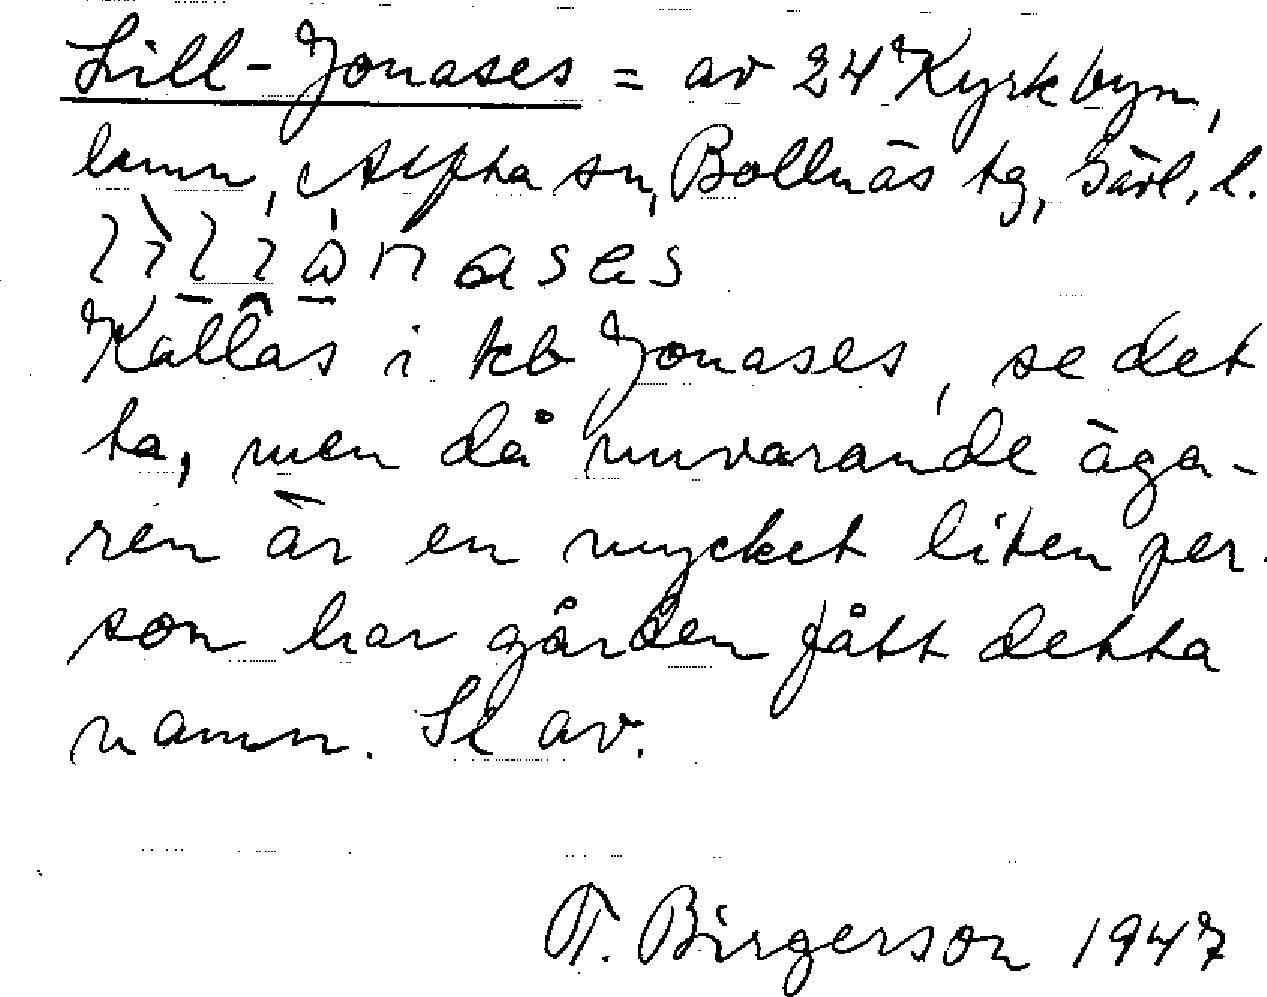 Lill-Jonases = av 24 Kyrkbyn,
lmn, Alfta sn, Bollnäs tg, Gävl. l.
Kallas i kb Jonases, se det
ta, men då nuvarande äga-
ren är en mycket liten per-
son har gården fått detta
namn. Se av.
T. Birgerson 1947